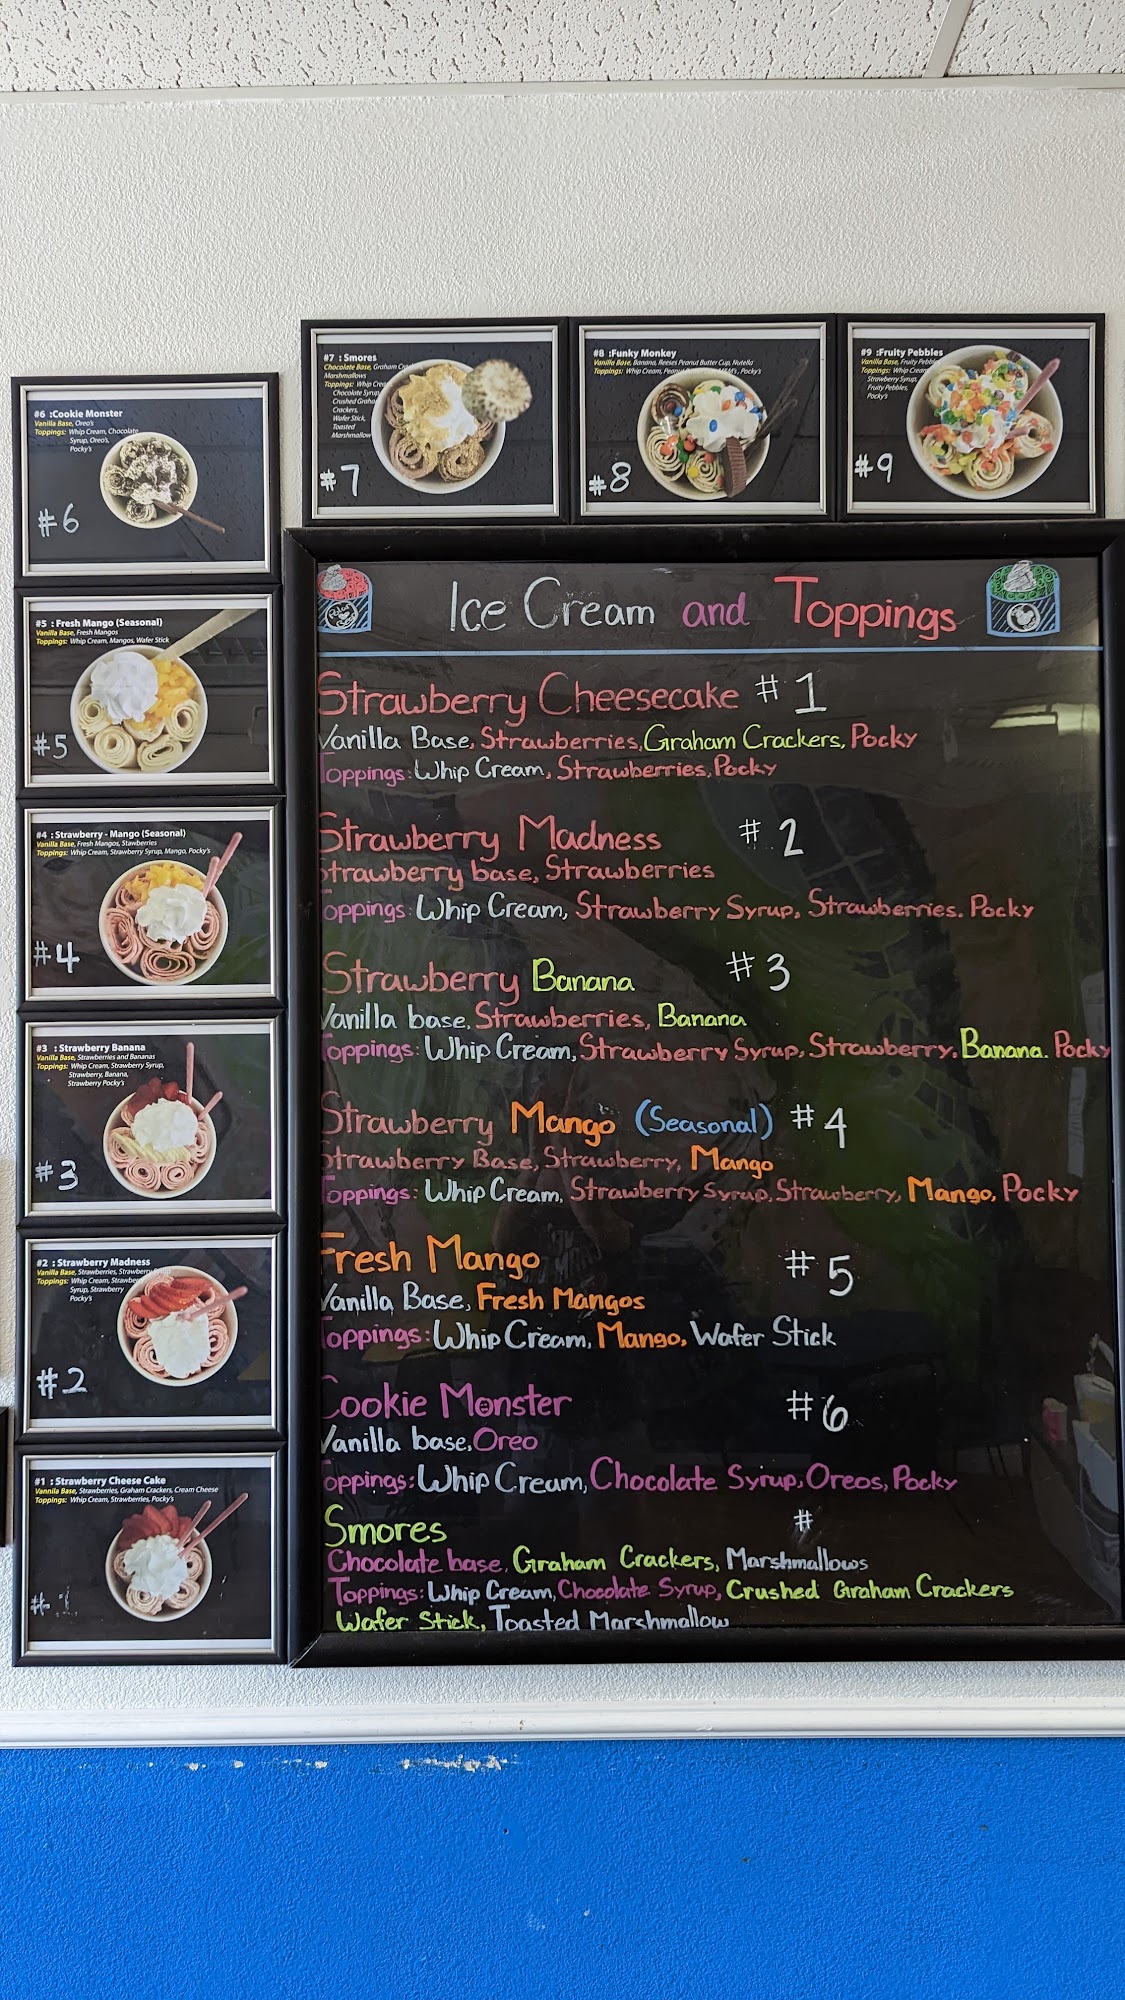 #7 : Smores
Chocolate Base, Graham
Marshmallows
Toppings: Whip
Chocolate Syrup
Crushed Graham
Crackers,
Wafer Stick,
Toasted
Marshmallow
#7
#8 :Funky Monkey
Vanilla Base, Banana, Reeses Peanut Butter Cup, Nutella
Toppings: Whip Cream, Peanut M&M's, Pocky's
#8
#9 :Fruity Pebbles
Vanilla Base, Fruity
Toppings: Whip Cream
Strawberry Syrup,
Fruity Pebbles,
Pocky's
#9
#6 :Cookie Monster
Vanilla Base, Oreo's
Toppings: Whip Cream, Chocolate
Syrup, Oreo's,
Pocky's
#6
#5 : Fresh Mango (Seasonal)
Vanilla Base, Fresh Mangos
Toppings: Whip Cream, Mangos, Wafer Stick
#5
#4 : Strawberry - Mango (Seasonal)
Vanilla Base, Fresh Mangos, Stawberries
Toppings: Whip Cream, Strawberry Syrup, Mango, Pocky's
#4
#3 : Strawberry Banana
Vanilla Base, Strawberries and Bananas
Toppings: Whip Cream, Strawberry Syrup,
Strawberry, Banana,
Strawberry Pocky's
#3
#2 : Strawberry Madness
Vanilla Base, Strawberries, Strawberry
Toppings: Whip Cream, Strawberry
Syrup, Strawberry
Pocky's
#2
#1 : Strawberry Cheese Cake
Vannila Base, Strawberries, Graham Crackers, Cream Cheese
Toppings: Whip Cream, Strawberries, Pocky's
Ice Cream and Toppings
Strawberry Cheesecake #1
Vanilla Base, Strawberries, Graham Crackers, Pocky
Toppings: Whip Cream, Strawberries, Pocky
Strawberry Madness #2
Strawberry base, Strawberries
Toppings: Whip Cream, Strawberry Syrup, Strawberries. Pocky
Strawberry Banana #3
Vanilla base, Strawberries, Banana
Toppings: Whip Cream, Strawberry Syrup, Strawberry, Banana. Pocky
Strawberry Mango (Seasonal) #4
Strawberry Base, Strawberry, Mango
Toppings: Whip Cream, Strawberry Syrup, Strawberry, Mango, Pocky
Fresh Mango #5
Vanilla Base, Fresh Mangos
Toppings: Whip Cream, Mango, Wafer Stick
Cookie Monster #6
Vanilla base, Oreo
Toppings: Whip Cream, Chocolate Syrup, Oreos, Pocky
Smores #
Chocolate base, Graham Crackers, Marshmallows
Toppings: Whip Cream, Chocolate Syrup, Crushed Graham Crackers
Wafer Stick, Toasted Marshmallow